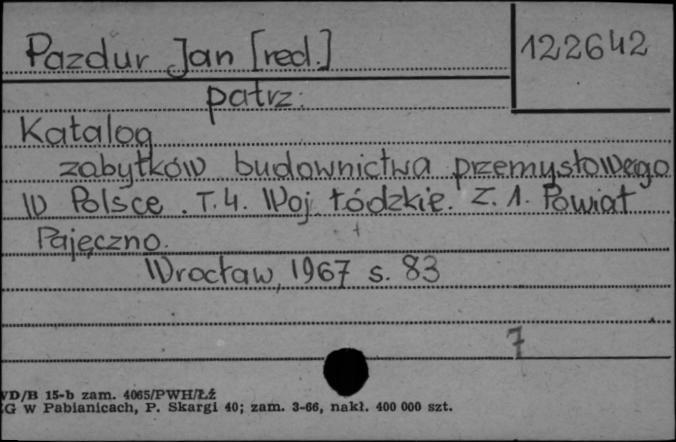 Pazdur Jan [red.]
122642
patrz:
Katalog
zabytków budownictwa przemysłowego
W Polsce. T. 4. Woj. Łódzkie. Z. 1. Powiat
Pajęczno.
Wrocław, 1967 s. 83
7
VD/B 15-b zam. 4065/PWH/Łź
G w Pabianicach, P. Skargi 40; zam. 3-66, nakł. 400 000 szt.